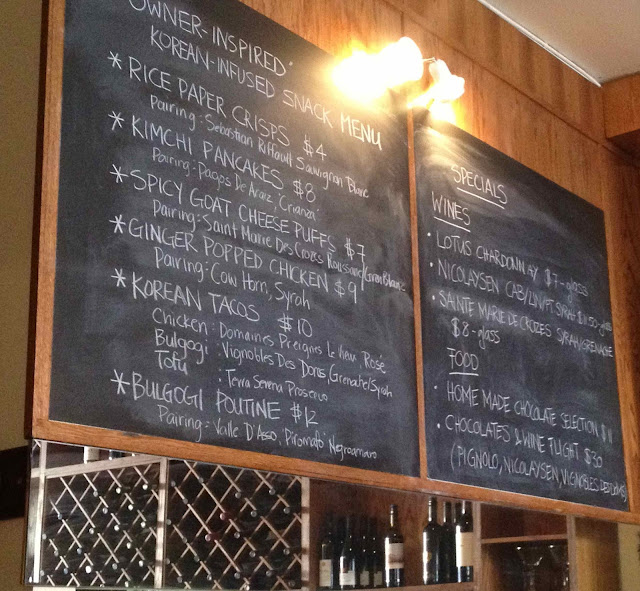 OWNER-INSPIRED
KOREAN-INFUSED SNACK MENU
* RICE PAPER CRISPS $4
Pairing: Sebastian Riffault Sauvignon Blanc
* KIMCHI PANCAKES $8
Pairing: Pagos De Araiz, 'Crianza'
* SPICY GOAT CHEESE PUFFS $7
Pairing: Saint Marie Des Crozes Roussane/Gren.Blanc
* GINGER POPPED CHICKEN $9
Pairing: Cow Horn, Syrah
* KOREAN TACOS $10
Chicken: Domaines Preignes Le Vieux, Rosé
Bulgogi: Vignobles Des Dom's, Grenache/Syrah
Tofu: Terra Serena Prosecco
* BULGOGI POUTINE $12
Pairing: Valle D'Asso, 'Piromafo' Negroamaro
SPECIALS
WINES
• LOTUS CHARDONNAY $7-glass
• NICOLAYSEN CAB/ SYRAH glass
• SAINTE MARIE DE CROZES SYRAH/GRENACHE
$8-glass
FOOD
• HOME MADE CHOCOLATE SELECTION $11
• CHOCOLATES & WINE FLIGHT $30
(PIGNOLO, NICOLAYSEN, VIGNOBLES